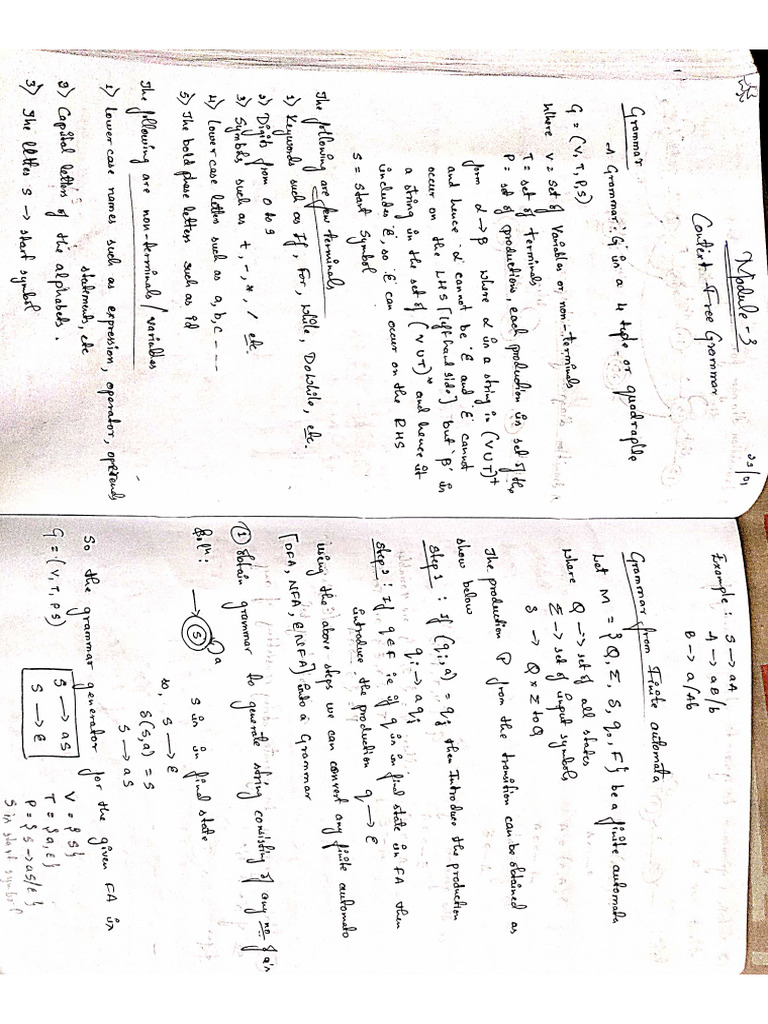 Module-3
23/01
Context Free Grammar
Grammar
A Grammar 'G' is a 4 tuple or quadraple
G = (V, T, P, S)
where V = set of Variables or non-terminals
T = set of terminals
P = set of productions, each production is set of the
form α → β where α is a string in (V U T)+
and hence 'α' cannot be 'ε' and 'ε' cannot
occur on the LHS [left hand side] but 'β' is
a string in the set of (V U T)* and hence it
includes 'ε', so 'ε' can occur on the RHS
S = Start Symbol
The following are few terminals
1) Keywords such as If, For, While, DoWhile, etc.
2) Digits from 0 to 9
3) Symbols such as +, -, *, / etc.
4) Lower case letters such as a, b, c - - -
5) The bold phase letters such as id
The following are non-terminals / variables
1) Lower case names such as expression, operator, operands
statements, etc
2) Capital letters of the alphabets.
3) The letter S → start symbol
Example : S → aA
A → aB/b
B → a/Ab
Grammar from Finite automata
Let M = {Q, Σ, δ, q0, F} be a finite automata
where Q → set of all states
Σ → set of input symbols
δ → Q × Σ to Q
The production P from the transition can be obtained as
show below
Step 1 : If (qi, a) = qj then Introduce the production
qi → a qj
Step 2 : If q ∈ F ie if q is in final state in FA then
introduce the production q → ε
using the above steps we can convert any finite automato
[DFA, NFA, ε-NFA] into a Grammar
① Obtain grammar to generate string consisting of any no of a's
Soln :
→ S a
S is in final state
so, S → ε
δ(S, a) = S
S → aS
So the grammar generator for the given FA is
G = (V, T, P, S)
S → aS
S → ε
V = {S}
T = {a, ε}
P = {S → aS/ε}
S is start symbol